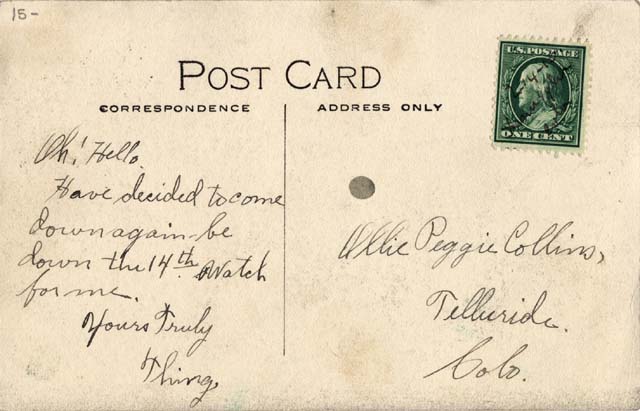 15-
POST CARD
CORRESPONDENCE
ADDRESS ONLY
U.S. POSTAGE
ONE CENT
Oh! Hello.
Have decided to come
down again - be
down the 14th. Watch
for me.
Yours Truly
Thing,
Ollie Peggie Collins,
Telluride.
Colo.